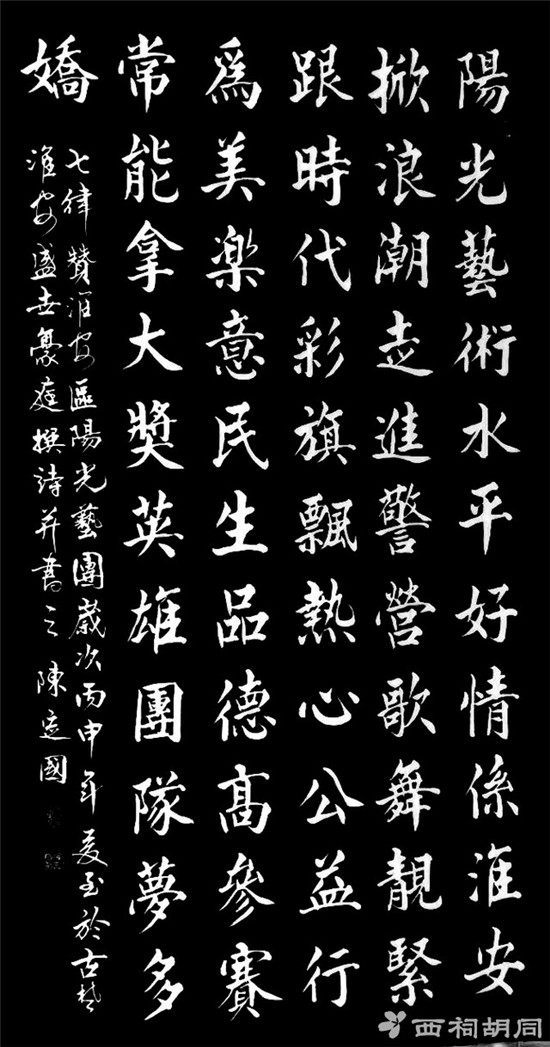 陽光藝術水平好情係淮安
掀浪潮走進警營歌舞靚緊
跟時代彩旗飄熱心公益行
爲美楽意民生品德髙參賽
常能拿大獎英雄團隊夢多
嬌
七律贊淮安區陽光藝團歲次丙申年夏至於古楚
淮安盛世豪庭撰詩並書之陳國
西祠胡同